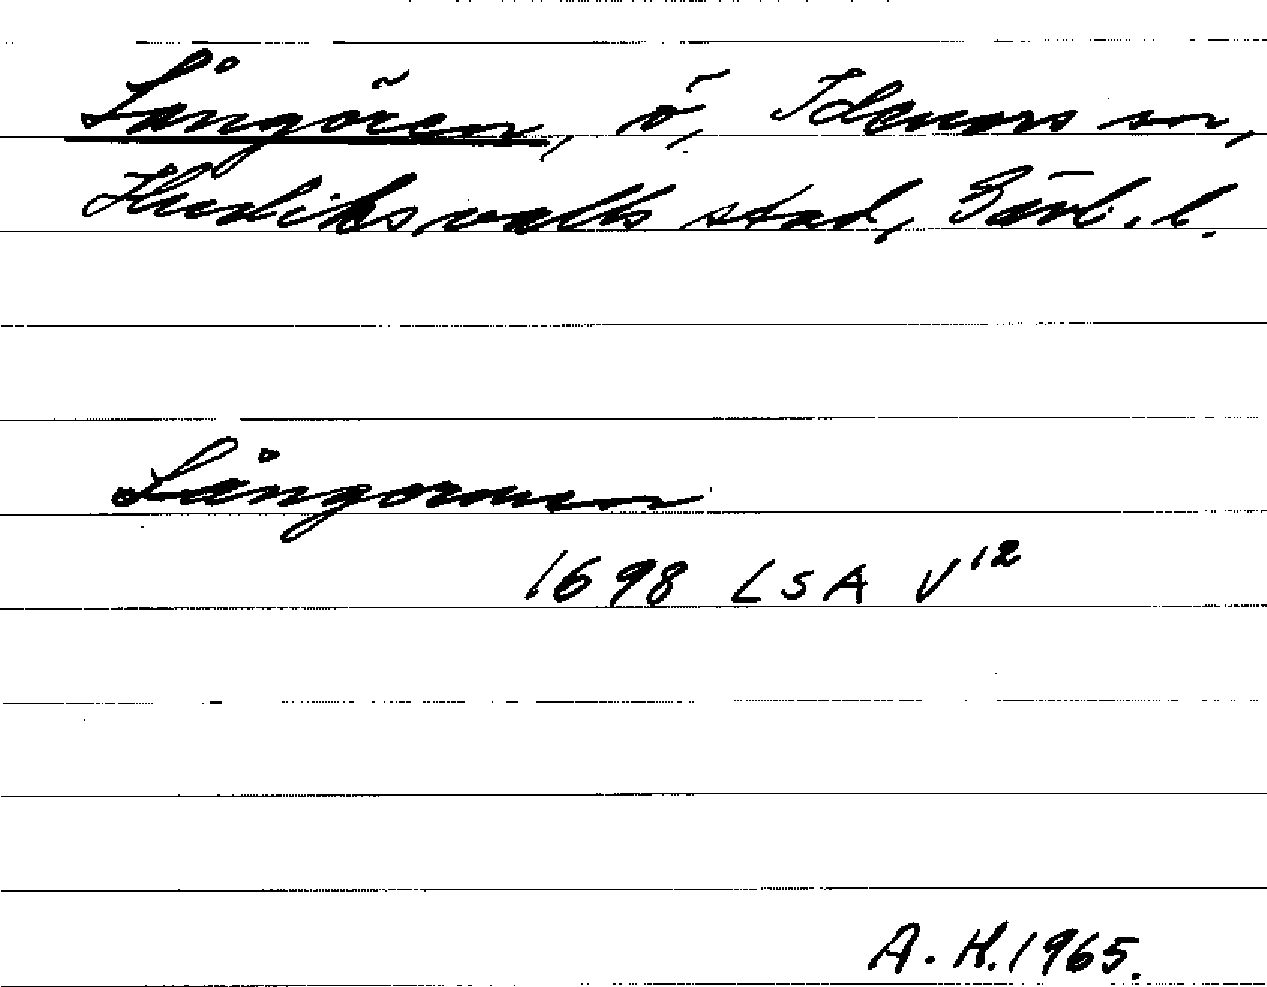 Långören, ö, Idenors sn,
Hudiksvalls stad, Gävleb. l.
Långörnen
1698 LSA V12
A. H. 1965.